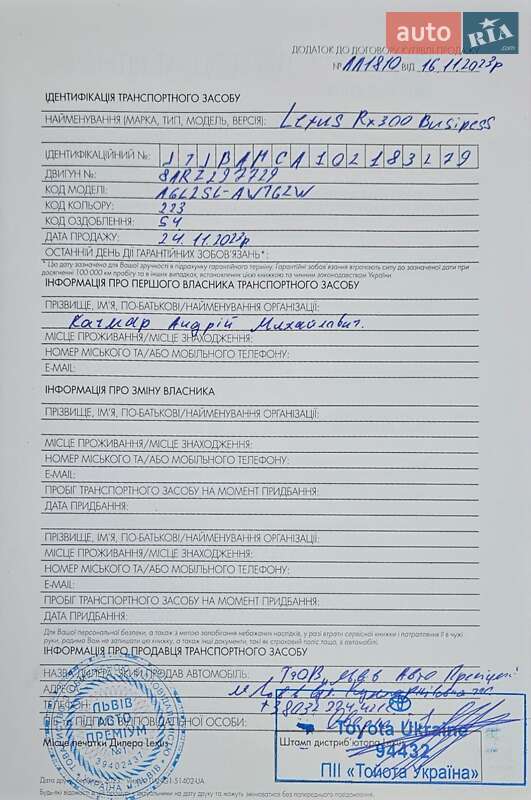 auto RIA.com
ДОДАТОК ДО ДОГОВОРУ КУПІВЛІ-ПРОДАЖУ
№ АА1810 ВІД 16.11.2023р
ІДЕНТИФІКАЦІЯ ТРАНСПОРТНОГО ЗАСОБУ
НАЙМЕНУВАННЯ (МАРКА, ТИП, МОДЕЛЬ, ВЕРСІЯ): Lexus Rx300 Business
ІДЕНТИФІКАЦІЙНИЙ №: JTJBAMCA102183279
ДВИГУН №: 8ARZ297729
КОД МОДЕЛІ: AGL25L-AWTGZW
КОД КОЛЬОРУ: 223
КОД ОЗДОБЛЕННЯ: 54
ДАТА ПРОДАЖУ: 24.11.2023р
ОСТАННІЙ ДЕНЬ ДІЇ ГАРАНТІЙНИХ ЗОБОВ'ЯЗАНЬ*:
* Цю дату зазначено для Вашої зручності в підрахунку гарантійного терміну; Гарантійні зобов'язання втрачають силу до зазначеної дати при
досягненні 100 000 км пробігу та в інших випадках, встановлених цією книжкою та чинним законодавством України
ІНФОРМАЦІЯ ПРО ПЕРШОГО ВЛАСНИКА ТРАНСПОРТНОГО ЗАСОБУ
ПРІЗВИЩЕ, ІМ'Я, ПО-БАТЬКОВІ/НАЙМЕНУВАННЯ ОРГАНІЗАЦІЇ:
Качмар Андрій Михайлович.
МІСЦЕ ПРОЖИВАННЯ/МІСЦЕ ЗНАХОДЖЕННЯ:
НОМЕР МІСЬКОГО ТА/АБО МОБІЛЬНОГО ТЕЛЕФОНУ:
E-MAIL:
ІНФОРМАЦІЯ ПРО ЗМІНУ ВЛАСНИКА
ПРІЗВИЩЕ, ІМ'Я, ПО-БАТЬКОВІ/НАЙМЕНУВАННЯ ОРГАНІЗАЦІЇ:
МІСЦЕ ПРОЖИВАННЯ/МІСЦЕ ЗНАХОДЖЕННЯ:
НОМЕР МІСЬКОГО ТА/АБО МОБІЛЬНОГО ТЕЛЕФОНУ:
E-MAIL:
ПРОБІГ ТРАНСПОРТНОГО ЗАСОБУ НА МОМЕНТ ПРИДБАННЯ:
ДАТА ПРИДБАННЯ:
ПРІЗВИЩЕ, ІМ'Я, ПО-БАТЬКОВІ/НАЙМЕНУВАННЯ ОРГАНІЗАЦІЇ:
МІСЦЕ ПРОЖИВАННЯ/МІСЦЕ ЗНАХОДЖЕННЯ:
НОМЕР МІСЬКОГО ТА/АБО МОБІЛЬНОГО ТЕЛЕФОНУ:
E-MAIL:
ПРОБІГ ТРАНСПОРТНОГО ЗАСОБУ НА МОМЕНТ ПРИДБАННЯ:
ДАТА ПРИДБАННЯ:
Для Вашої персональної безпеки, а також з метою запобігання небажаних наслідків, у разі втрати сервісної книжки і потрапляння її в чужі
руки, радимо Вам не залишати цю книжку, а також інші документи, такі як страховий поліс тощо, в автомобілі.
ІНФОРМАЦІЯ ПРО ПРОДАВЦЯ ТРАНСПОРТНОГО ЗАСОБУ
НАЗВА ДИЛЕРА, ЯКИЙ ПРОДАВ АВТОМОБІЛЬ: ТзОВ Львів Авто Преміум
АДРЕСА: м Львів
ТЕЛЕФОН:
ПІБ І ПІДПИС ВІДПОВІДАЛЬНОЇ ОСОБИ:
Місце печатки Дилера Lexus
Штамп дистриб'ютора Lexus
ЛЬВІВ
АВТО
ПРЕМІУМ
№1
Toyota Ukraine
94432
ПІІ «Тойота Україна»
Будь-які відомості в цій